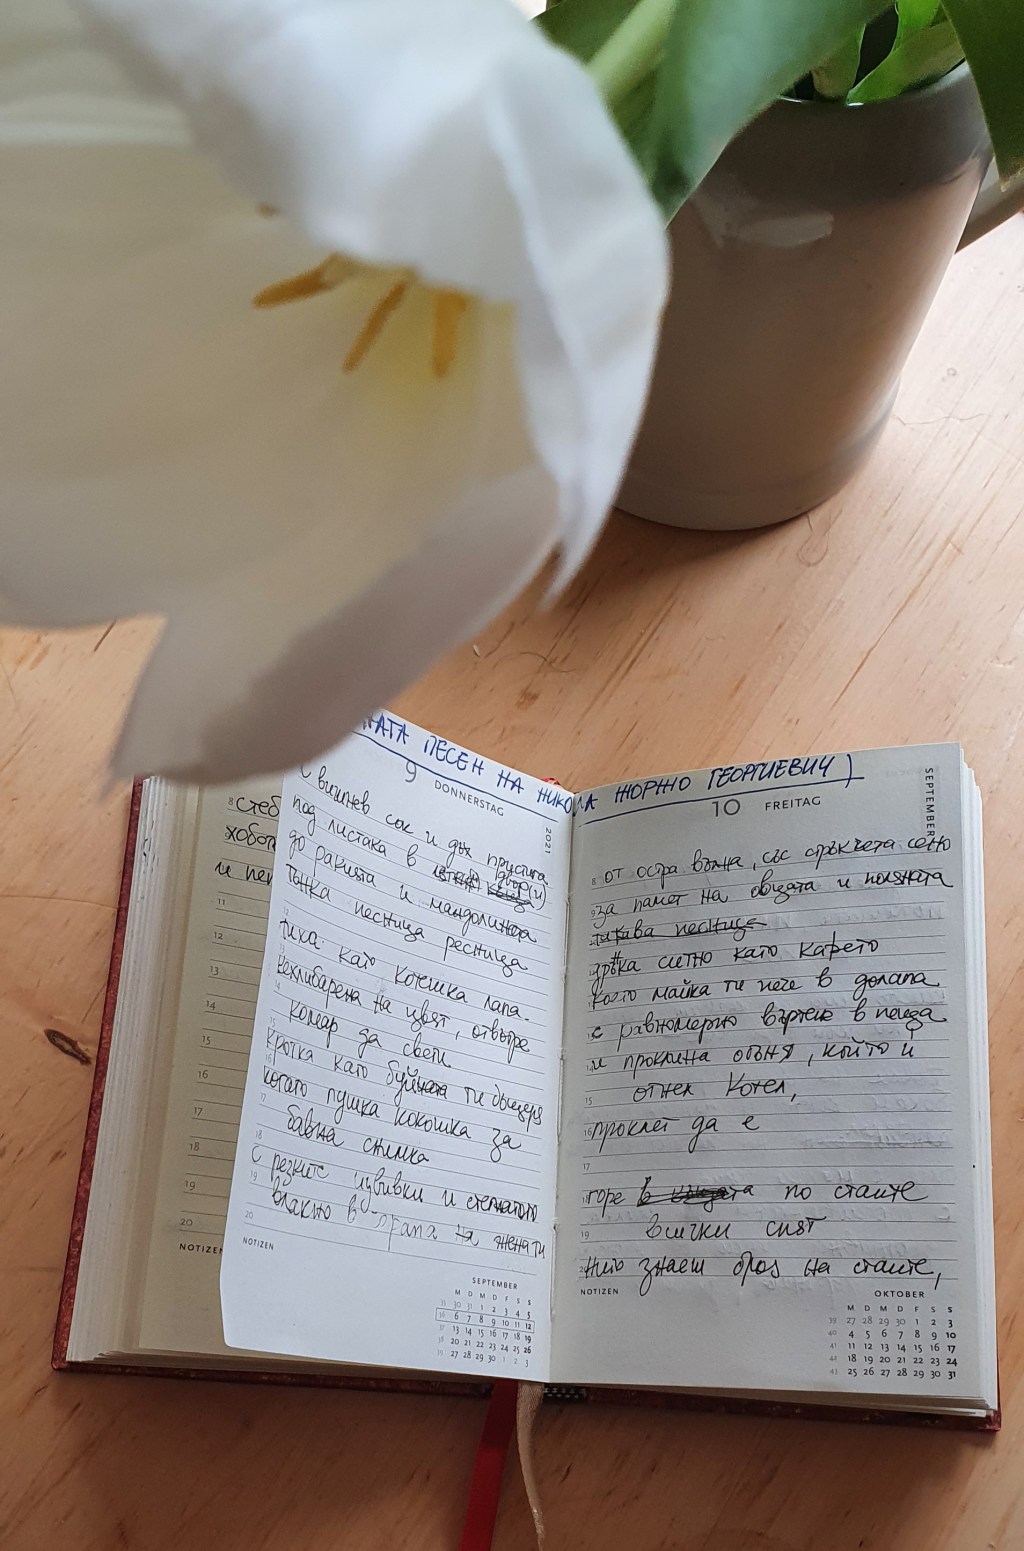 ПЕСЕН НА НИКОЛА ЖОРЖО ГЕОРГИЕВИЧ)
8 стеб
хобо
и пе
11
12
13
14
15
16
17
18
19
20
NOTIZEN
9 DONNERSTAG
2021
с вишнев сок и дъх
под листака в двор(и)
до ракията и мандолината
тънка песница ресница
тиха като котешка лапа.
кехлибарена на цвят, отвътре
комар да свети
кротка като ти дъщеря
когато пушка кокошка за
бавна снимка
с резките извивки и
влакно в на жената
NOTIZEN
SEPTEMBER
M D M D F S S
35 30 31 1 2 3 4 5
36 6 7 8 9 10 11 12
37 13 14 15 16 17 18 19
38 20 21 22 23 24 25 26
39 27 28 29 30 1 2 3
10 FREITAG
SEPTEMBER
от остра вълна, със стръкчета сено
за памет на овцата и поляната
такава песница
дръжка ситно като кафето
което майка ти пече в долапа
с равномерно въртене в пещта
и проклина огъня, който и
отнел Котел,
проклет да е
17
горе в къщата по стаите
всички спят
нито знаеш броя на стаите,
NOTIZEN
OKTOBER
M D M D F S S
39 27 28 29 30 1 2 3
40 4 5 6 7 8 9 10
41 11 12 13 14 15 16 17
42 18 19 20 21 22 23 24
43 25 26 27 28 29 30 31